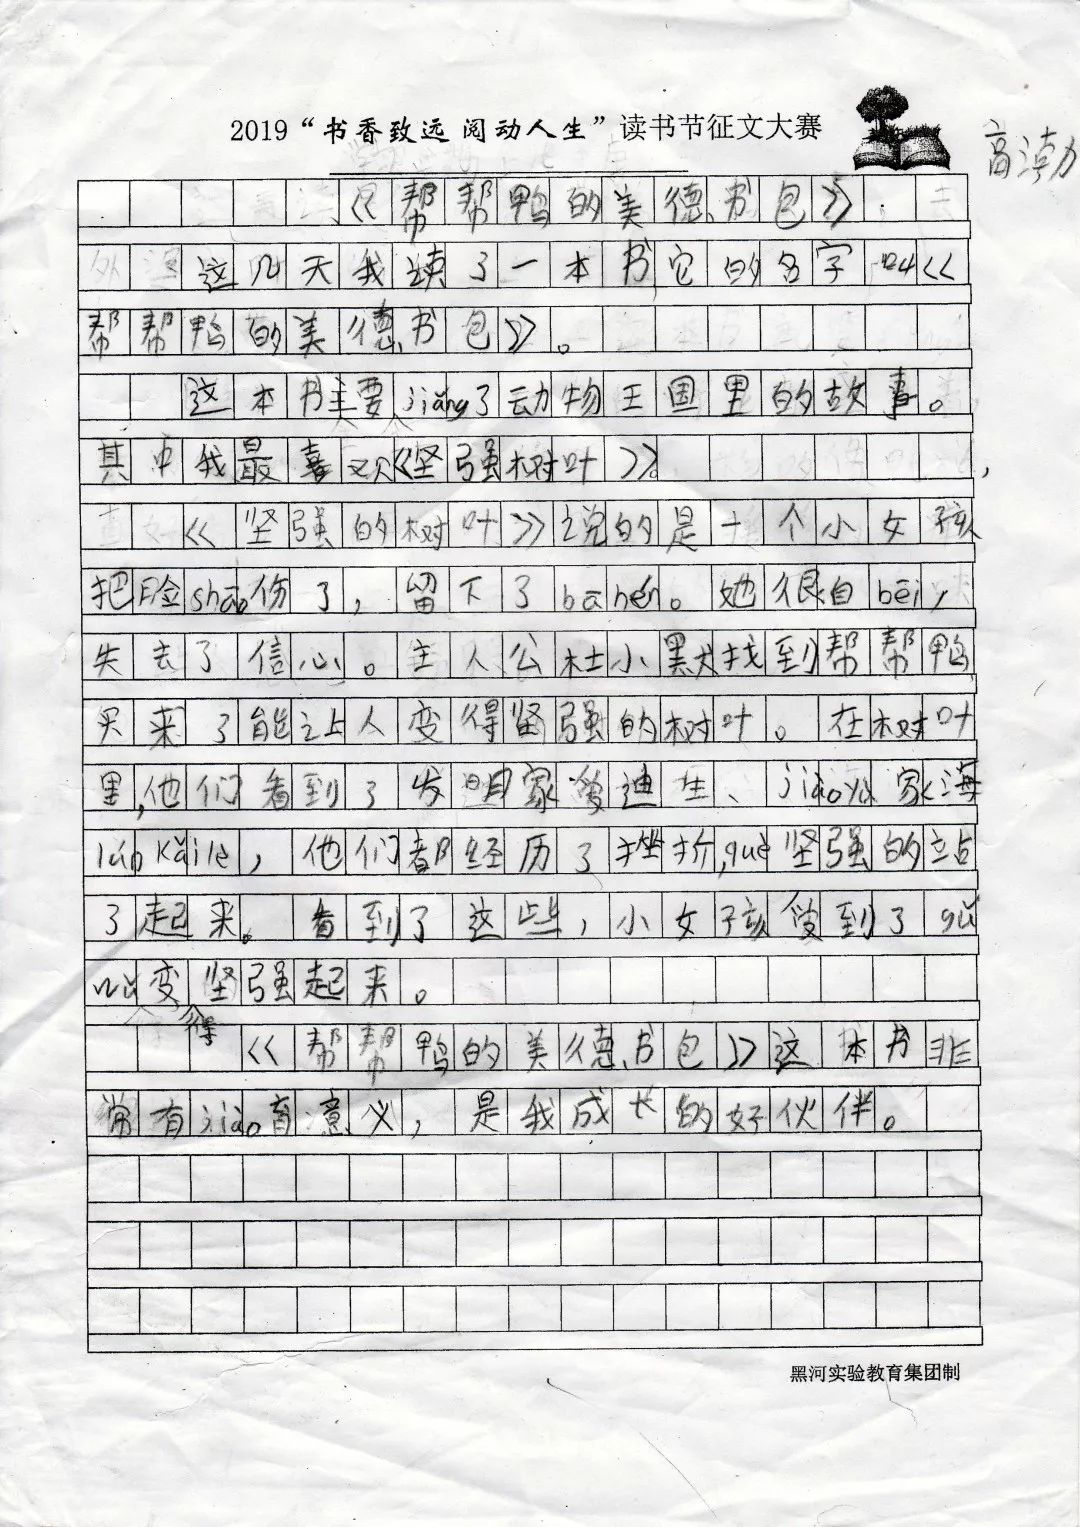 2019“书香致远 阅动人生”读书节征文大赛
高渤
《帮帮鸭的美德书包》
这几天我读了一本书它的名字叫《
帮帮鸭的美德书包》。
这本书主要jiǎng了动物王国里的故事。
其中我最喜欢《坚强树叶》。
《坚强的树叶》说的是一个小女孩
把脸shāo伤了，留下了bā hén。她很自bēi，
失去了信心。主人公杜小默找到帮帮鸭
买来了能让人变得坚强的树叶。在树叶
里，他们看到了发明家爱迪生、jiāo yù家海
lún kǎi lè，他们都经历了挫折，què坚强的站
了起来。看到了这些，小女孩受到了gǔ
wǔ变得坚强起来。
《帮帮鸭的美德书包》这本书非
常有jiāo育意义，是我成长的好伙伴。
黑河实验教育集团制